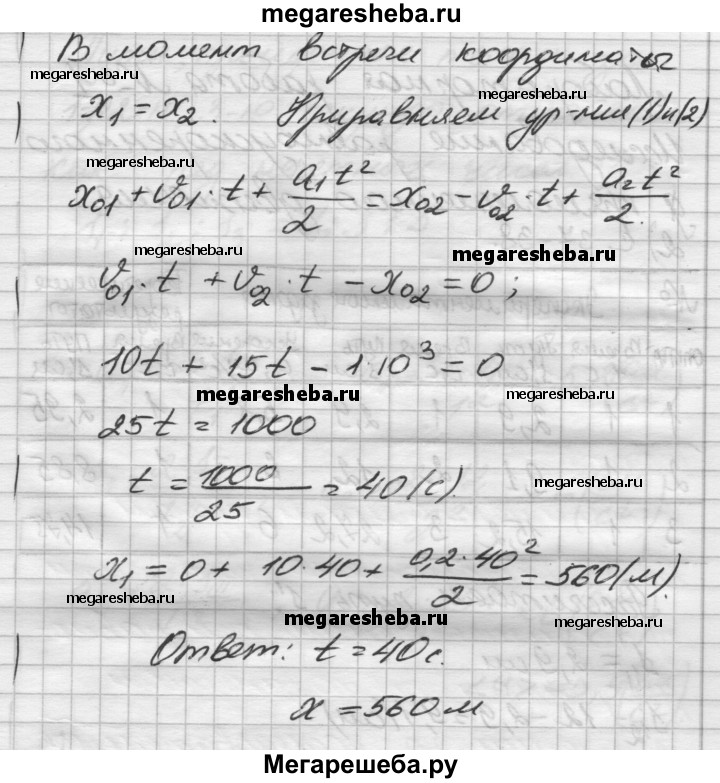 megaresheba.ru
В момент встречи координаты
megaresheba.ru
megaresheba.ru
x₁ = x₂. Приравняем ур-ния (1) и (2)
megaresheba.ru
x₀₁ + v₀₁·t + a₁t²/2 = x₀₂ - v₀₂·t + a₂t²/2.
megaresheba.ru
megaresheba.ru
v₀₁·t + v₀₂·t - x₀₂ = 0;
10t + 15t - 1·10³ = 0
megaresheba.ru
megaresheba.ru
25t = 1000
t = 1000/25 = 40 (с).
megaresheba.ru
x₁ = 0 + 10·40 + 0,2·40²/2 = 560 (м).
megaresheba.ru
megaresheba.ru
megaresheba.ru
Ответ: t = 40 с.
x = 560 м
Мегарешеба.ру